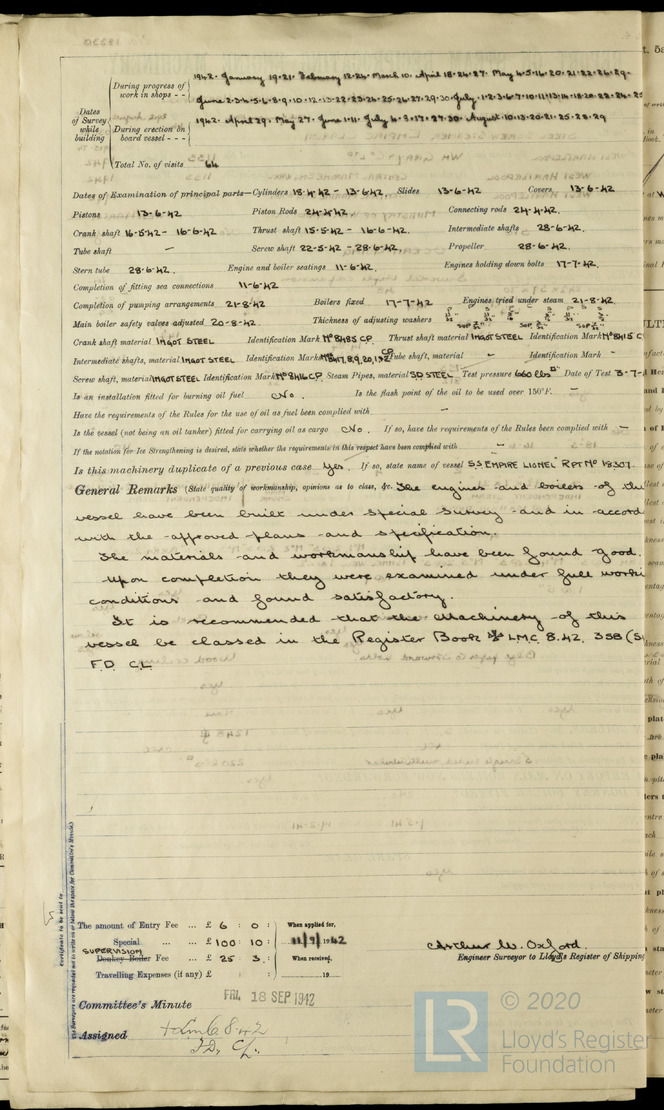 1942. January 19.21. February 12.24. March 10. April 18.24.27. May 4.5.16.20.21.22.26.29.
During progress of work in shops - -
June 2.3.4.5.6.8.9.10.12.13.22.23.24.25.26.27.29.30. July 1.2.3.6.7.10.11.13.14.18.20.22.24.25
Dates of Survey while building
During erection on board vessel - - -
1942. April 29. May 27. June 1.11. July 4.9.17.27.30. August 10.13.20.21.25.28.29
Total No. of visits 64
Dates of Examination of principal parts—Cylinders 15.4.42 - 13.6.42 Slides 13-6-42 Covers 13-6-42
Pistons 13-6-42 Piston Rods 24.4.42. Connecting rods 24.4.42.
Crank shaft 16-5-42 - 16-6-42 Thrust shaft 15-5-42 - 16-6-42. Intermediate shafts 28-6-42.
Tube shaft — Screw shaft 22-5-42 - 28-6-42. Propeller 28-6-42.
Stern tube 28-6-42. Engine and boiler seatings 11-6-42. Engines holding down bolts 17-7-42.
Completion of fitting sea connections 11-6-42
Completion of pumping arrangements 21-8-42 Boilers fixed 17-7-42 Engines tried under steam 21-8-42.
Main boiler safety valves adjusted 20-8-42. Thickness of adjusting washers
Crank shaft material INGOT STEEL Identification Mark Nº 8485 CP Thrust shaft material INGOT STEEL Identification Mark Nº 8415 C
Intermediate shafts, material INGOT STEEL Identification Marks Tube shaft, material — Identification Mark -
Screw shaft, material INGOT STEEL Identification Mark Nº 8416 CP. Steam Pipes, material S.D STEEL Test pressure 660 lbs □" Date of Test 3-7-
Is an installation fitted for burning oil fuel No. Is the flash point of the oil to be used over 150°F. —
Have the requirements of the Rules for the use of oil as fuel been complied with —
Is the vessel (not being an oil tanker) fitted for carrying oil as cargo No. If so, have the requirements of the Rules been complied with —
If the notation for Ice Strengthening is desired, state whether the requirements in this respect have been complied with —
Is this machinery duplicate of a previous case Yes. If so, state name of vessel S.S EMPIRE LIONEL RPT Nº 18307.
General Remarks (State quality of workmanship, opinions as to class, &c. The engines and boilers of this
vessel have been built under Special Survey and in accord
with the approved plans and specification.
The materials and workmanship have been found good.
Upon completion they were examined under full worki
conditions and found satisfactory.
It is recommended that the Machinery of this
vessel be classed in the Register Book LMC 8.42. 3SB (S
F.D. C.L
Certificate to be sent to
The amount of Entry Fee ... £ 6 : 0 : When applied for,
Special ... ... £ 100 : 10 : 11/9/1942
SUPERVISION
Donkey Boiler Fee ... £ 25 : 3 : When received,
Travelling Expenses (if any) £ : : 19
Arthur W. Oxford.
Engineer Surveyor to Lloyd's Register of Shipping
Committee's Minute FRI. 18 SEP 1942
Assigned + Lmc 8 42
F.D. CL.
LR © 2020
Lloyd's Register
Foundation